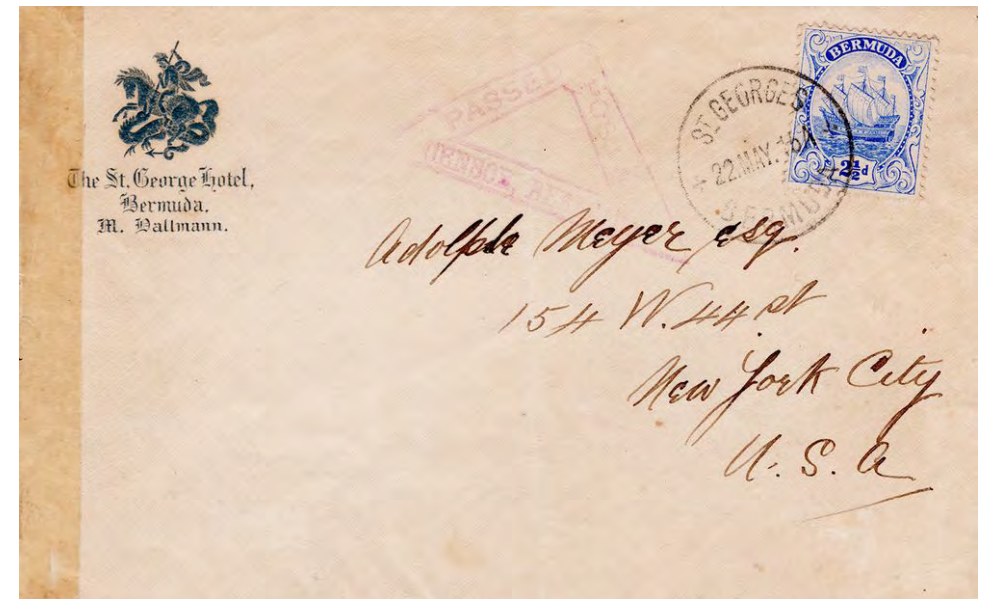 The St. George Hotel,
Bermuda.
M. Dallmann.
PASSED
CENSOR, BERMUDA
ST GEORGE'S
22.MAY.
BERMUDA
BERMUDA
2½d
Adolphe Meyer, esq.
154 W. 44 st
New York City
U. S. A